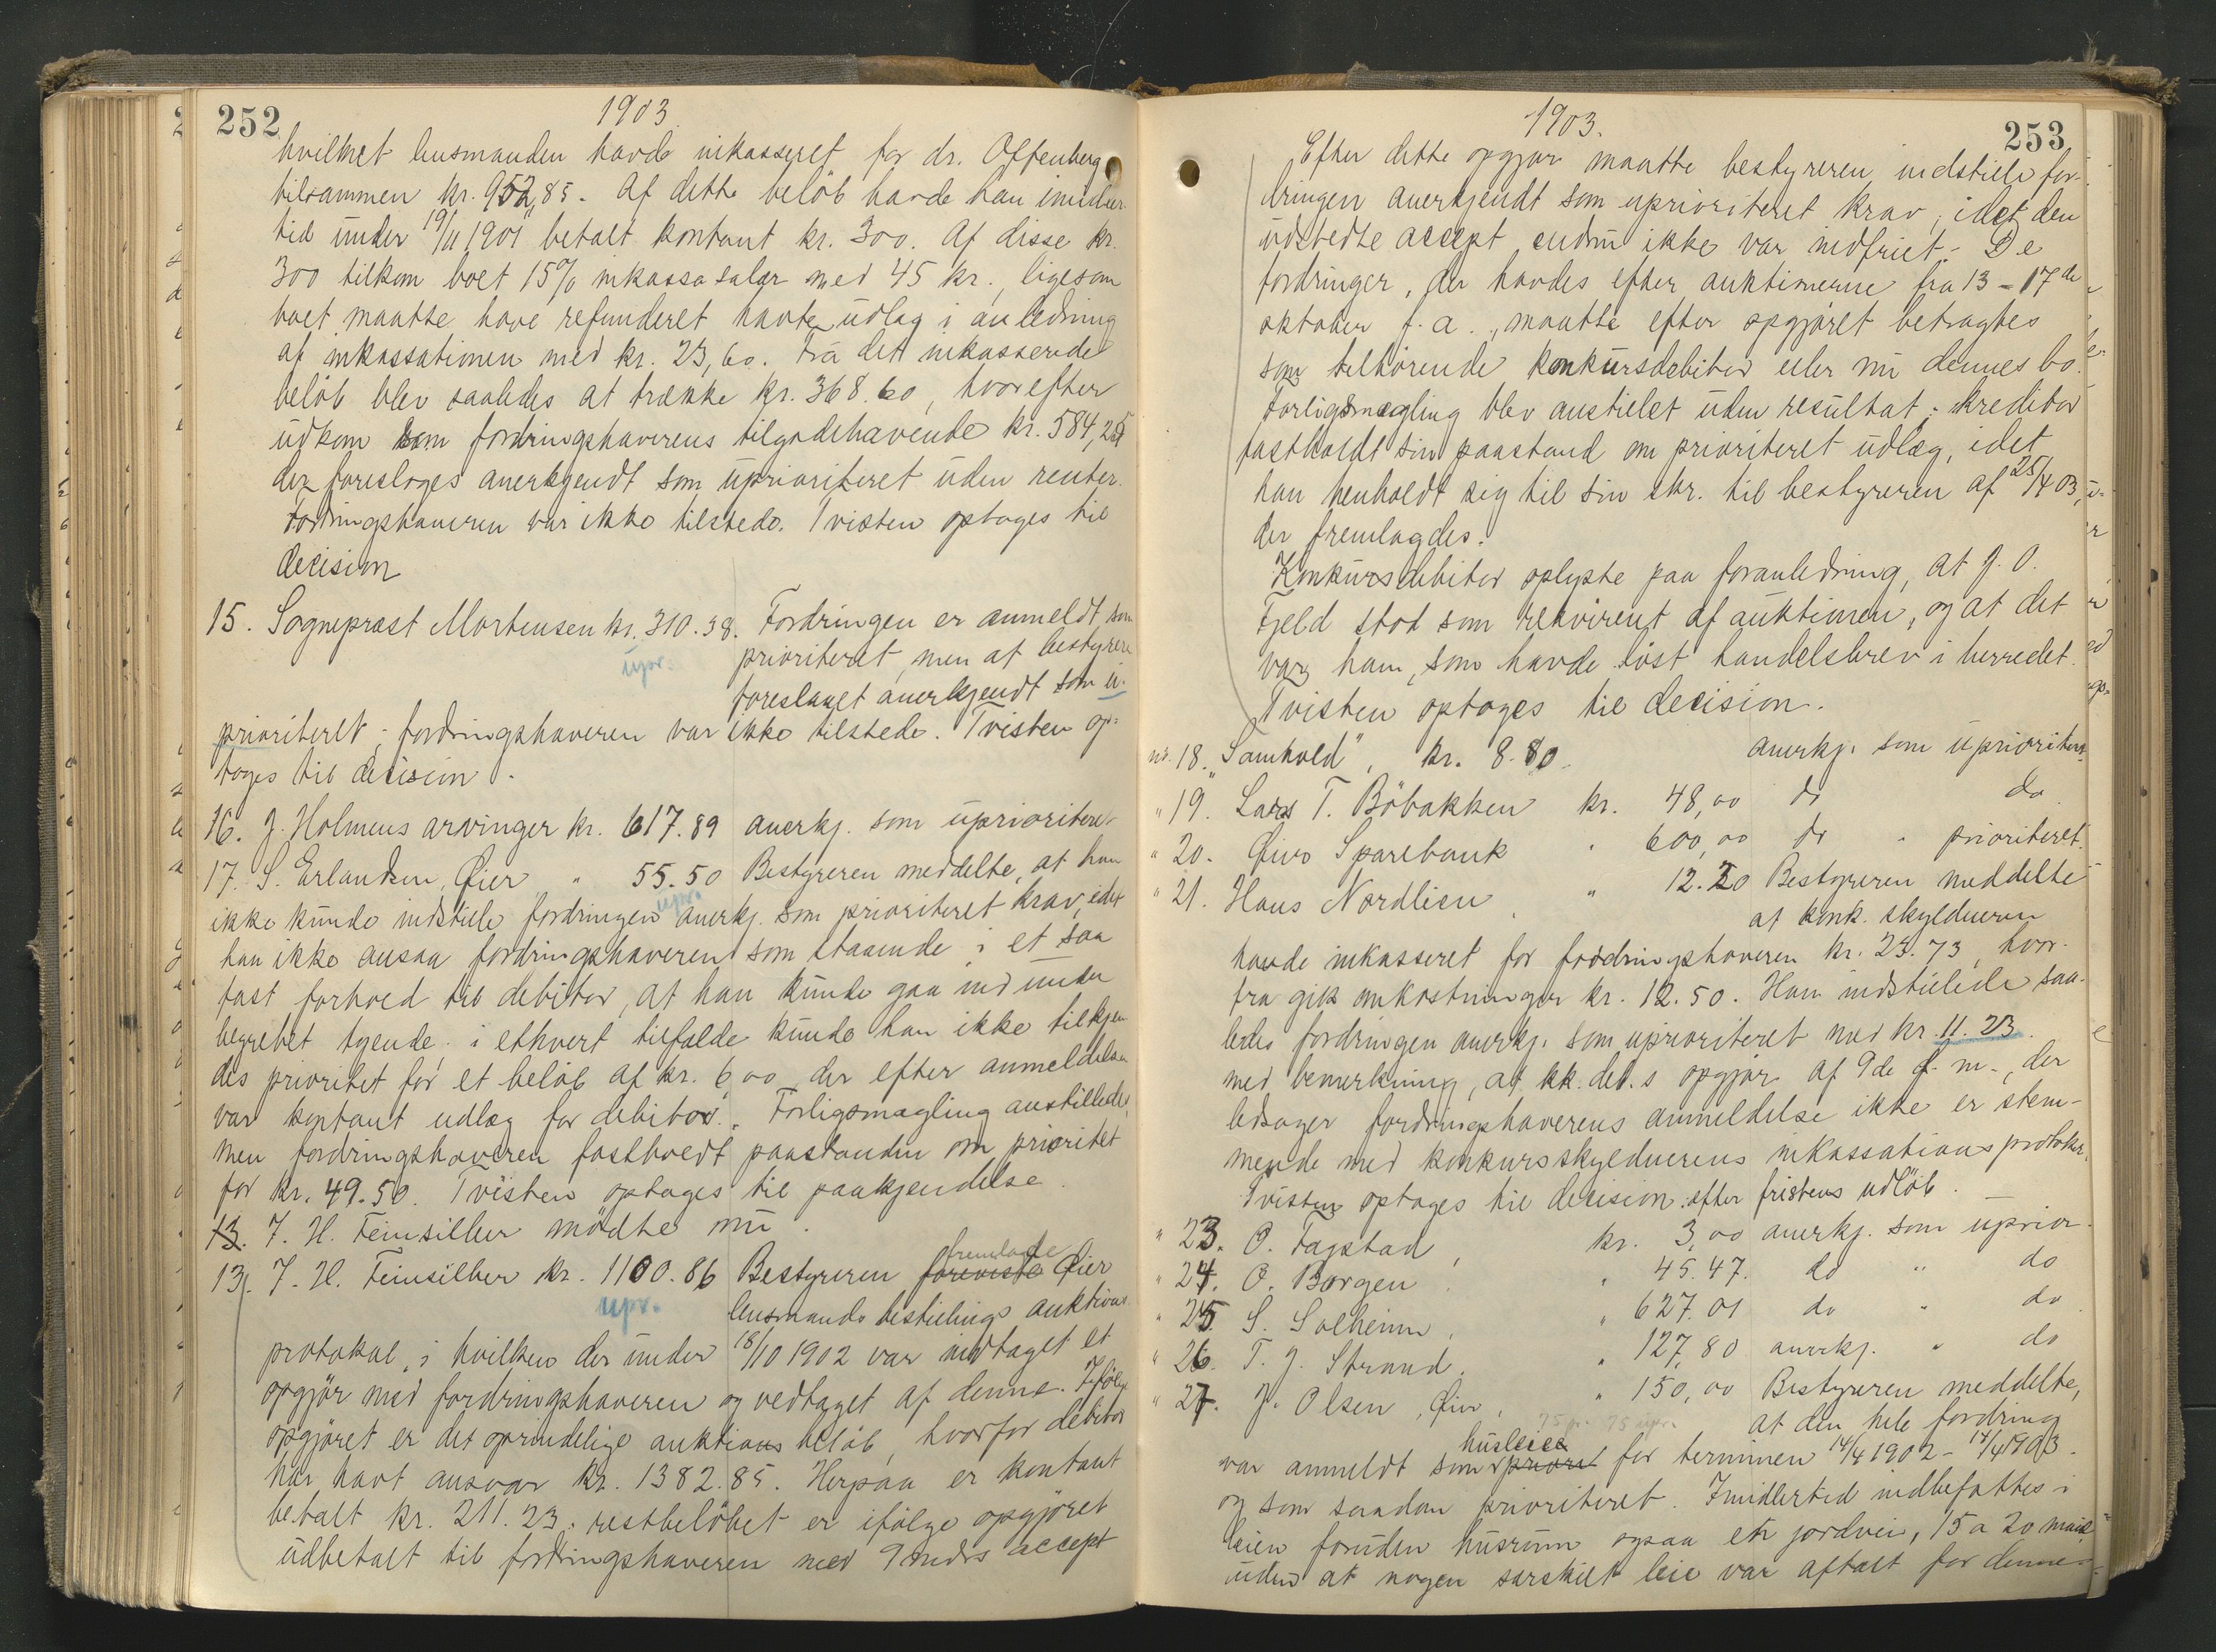 252
1903.
hvilket lensmanden havde inkasseret for dr. Offenberg
tilsammen kr. 952,85. Af dette beløb havde han imidler
tid under 19/11 1901 betalt kontant kr. 300. Af disse kr.
300 tilkom boet 15% inkassosalær med 45 kr., ligesom
boet maatte have refunderet havte udlæg i anledning
af inkassationen med kr. 23,60. Fra det inkasserede
beløb blev saaledes at trække kr. 368.60, hvorefter
udkom som fordringshaverens tilgodehavende kr. 584,25
der foresloges anerkjendt som uprioriteret uden renter.
Fordringshaveren var ikke tilstede. Tvisten optages til
decision
15. Sognepræst Mortensen kr. 310.38. Fordringen er anmeldt som
upr. prioriteret, men af bestyreren
foreslaaet anerkjendt som u-
prioriteret; fordringshaveren var ikke tilstede. Tvisten op-
tages til decision.
16. J. Holmens arvinger kr. 617.89 anerkj. som uprioriteret
17. S. Erlandsen, Øier " 55.50 Bestyreren meddelte, at han
upr.
ikke kunde indstille fordringen anerkj. som prioriteret krav, idet
han ikke ansaa fordringshaveren som staaende i et saa
fast forhold til debitor, at han kunde gaa ind under
begrebet tyende; i ethvert tilfælde kunde han ikke tilkjen
des prioritet for et beløb af kr. 6,00 der efter anmeldelsen
var kontant udlæg for debitor. Forligsmægling anstilledes,
men fordringshaveren fastholdt paastanden om prioritet
for kr. 49.50. Tvisten optages til paakjendelse.
13. J. H. Feinsilber mødte nu.
fremlagde
13. J. H. Feinsilber kr. 1100.86 Bestyreren foreviste Øier
upr. lensmands bestillings auktions
protokol, i hvilken der under 18/10 1902 var indtaget et
opgjør med fordringshaveren og vedtaget af denne. Ifølge
opgjøret er det oprindelige auktions beløb, hvorfor debitor
har havt ansvar kr. 1382.85. Herpaa er kontant
betalt kr. 211.23; restbeløbet er ifølge opgjøret
udbetalt til fordringshaveren med 9 mdrs accept
253
1903.
Efter dette opgjør maatte bestyreren indstille for-
dringen anerkjendt som uprioriteret krav, idet den
udstedte accept endnu ikke var indfriet. De
fordringer, der havdes efter auktionerne fra 13-17de
oktober f. a., maatte efter opgjøret betragtes
som tilhørende konkursdebitor eller nu dennes bo.
Forligsmægling blev anstillet uden resultat; kreditor
fastholdt sin paastand om prioriteret udlæg, idet
han henholdt sig til sin skr. til bestyreren af 25/4 03,
der fremlagdes.
Konkursdebitor oplyste paa foranledning, at J. O.
Fjeld stod som rekvirent af auktionen, og at det
var ham, som havde løst handelsbrev i herredet.
Tvisten optages til decision.
nr. 18. "Samhold", kr. 8.80. anerkj. som uprioriteret.
" 19. Lars T. Bøbakken kr. 48,00 do do
" 20. Øiers Sparebank " 600,00 do " prioriteret.
" 21. Hans Nordlien " 12.20 Bestyreren meddelte
at konk. skyldneren
havde inkasseret for fordringshaveren kr. 23.73, hvor-
fra gik omkostninger kr. 12.50. Han indstillede saa-
ledes fordringen anerkj. som uprioriteret med kr. 11.23.
med bemerkning, at kk. deb.s opgjør af 9de d. m., der
ledsager fordringshaverens anmeldelse ikke er stem-
mende med konkursskyldnerens inkassationsprotokol.
Tvisten optages til decision efter fristens udløb.
" 23. O. Fagstad, kr. 3,00 anerkj. som uprior.
" 24. O. Borgen " 45.47. do " do
" 25. S. Solheim, " 627.01 do " do
" 26. T. J. Strand, " 127,80 anerkj. " do
" 27. J. Olsen, Øier, " 150,00 Bestyreren meddelte,
75 pr. 75 upr. at den hele fordring
husleie
var anmeldt som priorit for terminen 14/4 1902 - 14/4 1903.
og som saadan prioriteret. Imidlertid indbefattes i
leien foruden husrum ogsaa en jordvei, 15 a 20 maal
uden at nogen særskilt leie var aftalt for denne